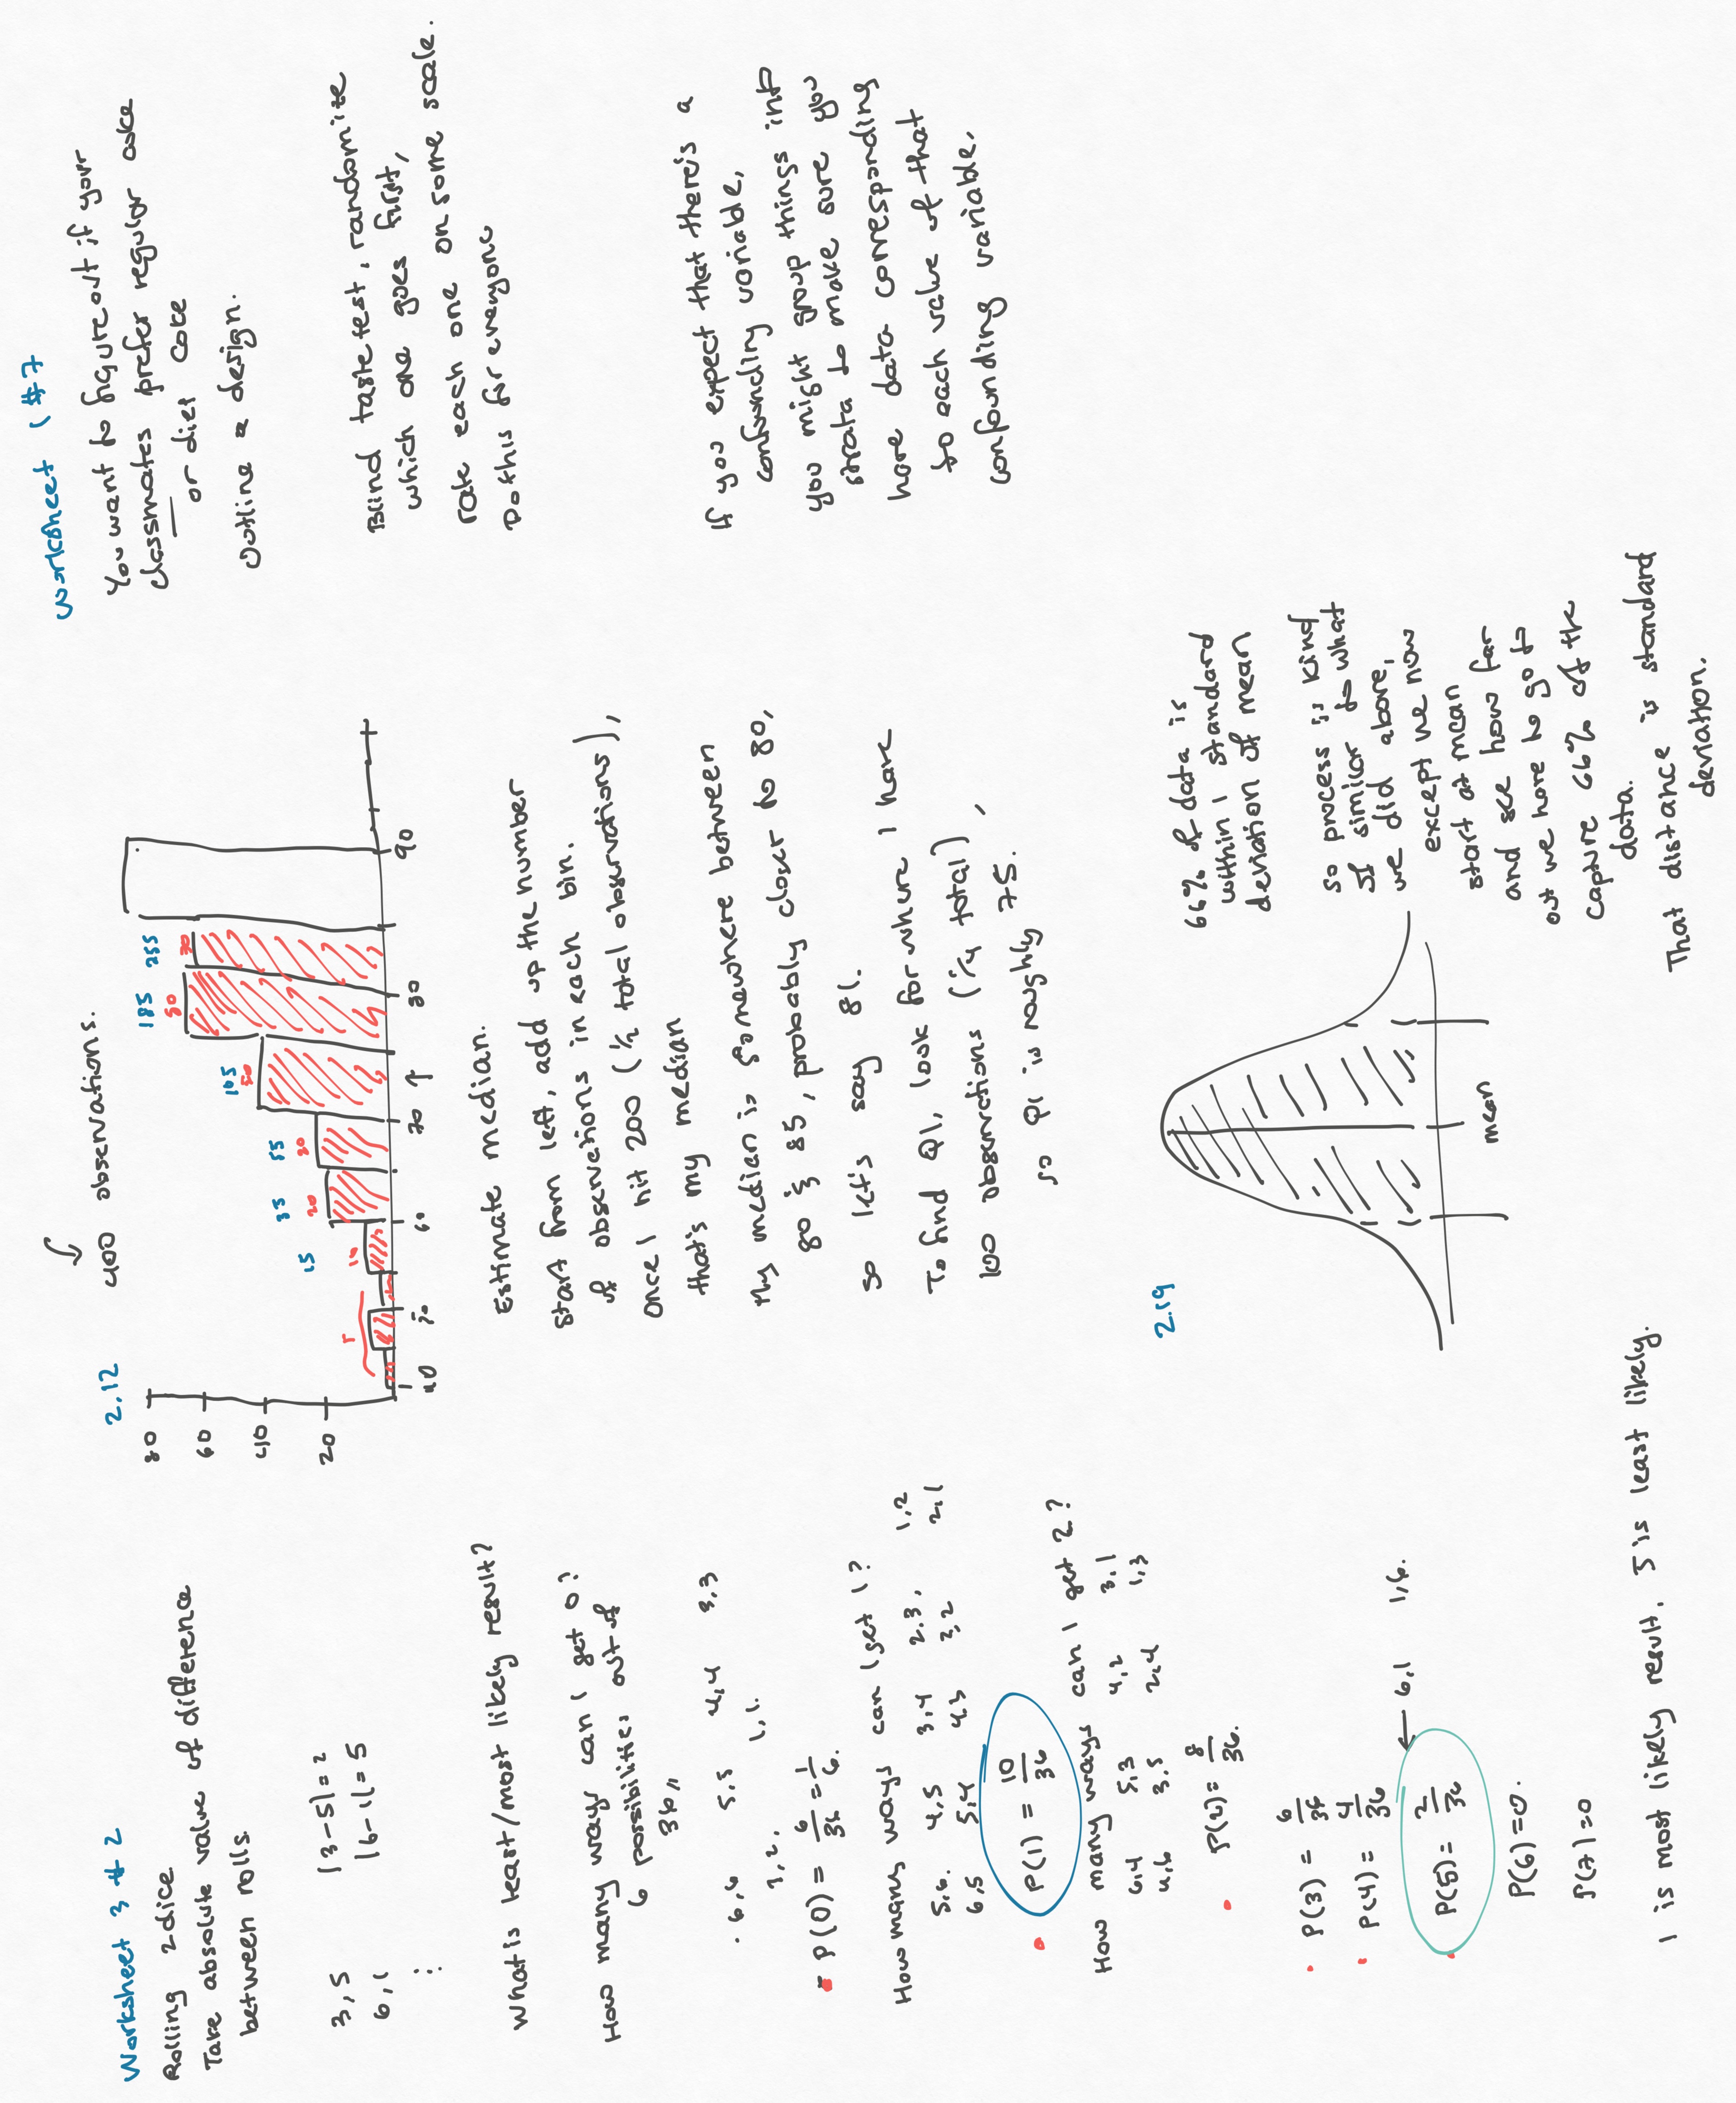 Worksheet 3 # 2
Rolling 2 dice
Take absolute value of difference
between rolls.
3,5 |3-5|=2
6,1 |6-1|=5
What is least/most likely result?
How many ways can I get 0?
6 possibilities out of
36,,
6,6 5,5 4,4 3,3
2, 1,1.
P(0) = 6/36 = 1/6.
How many ways can I get 1?
5,6. 4,5 3,4 2,3, 1,2
6,5 5,4 4,3 3,2 2,1
P(1) = 10/36
How many ways can I get 2?
6,4 5,3 4,2 3,1
4,6 3,5 2,4 1,3
P(2) = 8/36.
P(3) = 6/36
P(4) = 4/36
P(5) = 2/36 ← 6,1 1,6.
P(6) = 0.
P(7) = 0
1 is most likely result, 5 is least likely.
2.12 400 observations.
80
60
40
20
5 10 20 20 50 80 70
15 35 55 105 185 255
40 50 60 70 ↑ 80 90
Estimate median.
Start from left, add up the number
of observations in each bin.
Once I hit 200 (1/2 total observations),
that's my median
My median is somewhere between
80 & 85, probably closer to 80,
so let's say 81.
To find Q1, look for where I have
100 observations (1/4 total),
so Q1 is roughly 75.
2.19
mean
66% of data is
within 1 standard
deviation of mean
so process is kind
of similar to what
we did above,
except we now
start at mean
and see how far
out we have to go to
capture 66% of the
data.
That distance is standard
deviation.
Worksheet 1 #7
You want to figure out if your
classmates prefer regular coke
or diet coke
Outline a design.
Blind taste test, randomize
which one goes first,
rate each one on some scale.
Do this for everyone
If you expect that there's a
confounding variable,
you might group things into
strata to make sure you
have data corresponding
to each value of that
confounding variable.